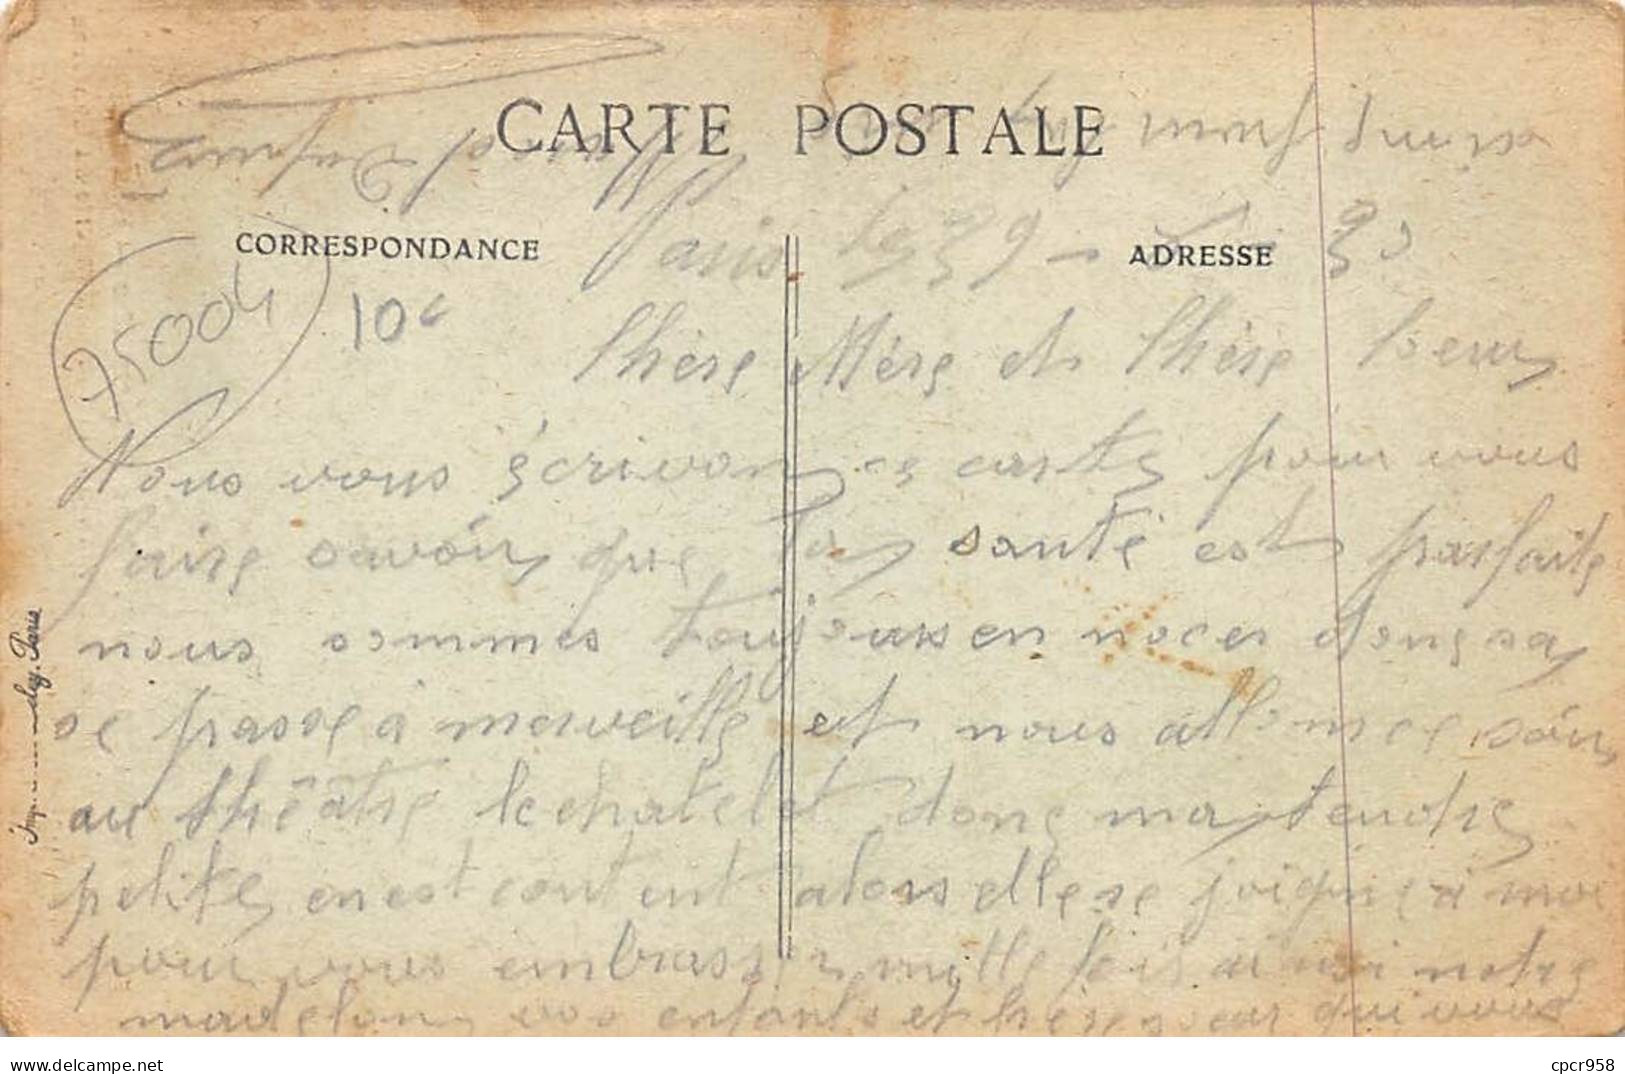 CARTE POSTALE
CORRESPONDANCE
ADRESSE
75004
10c
Paris le 29 - 30
Chère Mère et Chère Soeur
Nous vous écrivons ce carte pour vous
faire savoir que la santé est parfaite
nous sommes toujours en noces donc sa
se passe à merveille et nous allons ce soir
au théâtre le chatelet donc ma tendre
petite en est content alors elle se joigne à moi
pour vous embrasser mille fois ainsi notre
madelon vos enfants et frère soeur qui vous
Paris
cpcr958